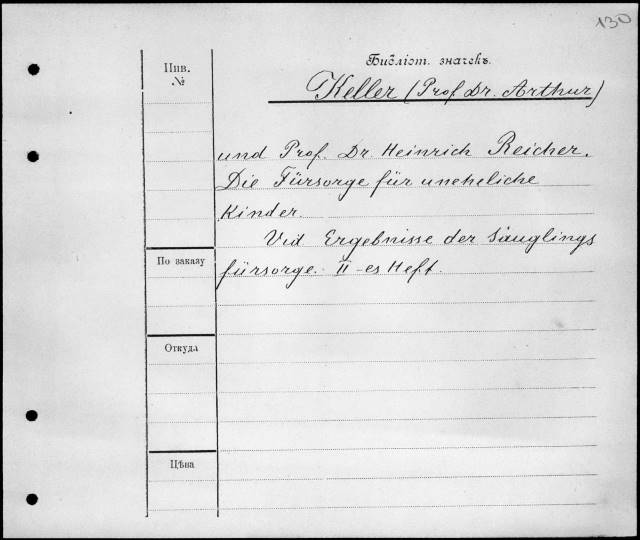 130
Библіот. значекъ.
Инв.
№
Keller (Prof. Dr. Arthur)
und Prof. Dr. Heinrich Reicher.
Die Fürsorge für uneheliche
Kinder.
Vid Ergebnisse der Säuglings
fürsorge. II-es Heft.
По заказу
Откуда
Цѣна